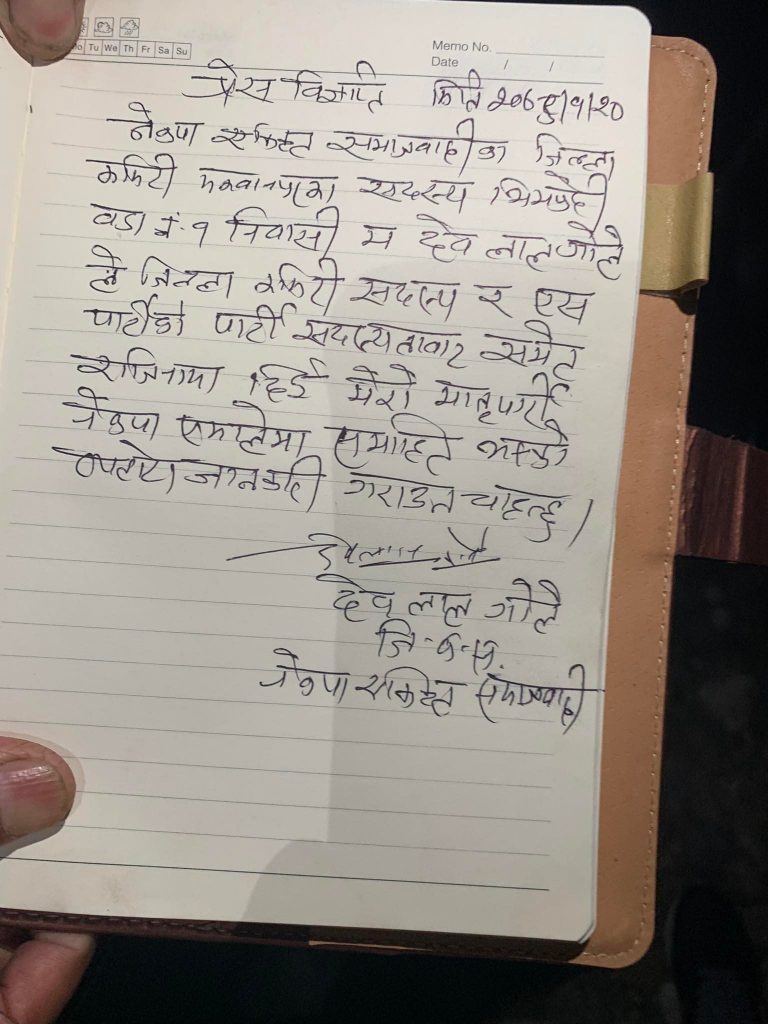 Tu We Th Fr Sa Su
Memo No.
Date / /
प्रेस विज्ञप्ति मिति २०७८/१/२०
नेकपा एकिकृत समाजवादीका जिल्ला
कमिटी मकवानपुरका सदस्य भिमफेदी
वडा नं. १ निवासी म देव लाल गोले
ले जिल्ला कमिटी सदस्य र एस
पार्टीको पार्टी सदस्यताबाट समेत
राजिनामा दिई मेरो मातृपार्टी
नेकपा एमालेमा समाहित भएको
व्यहोरा जानकारी गराउन चाहन्छु ।
देव लाल गोले
जि.क.स.
नेकपा एकिकृत समाजवादी